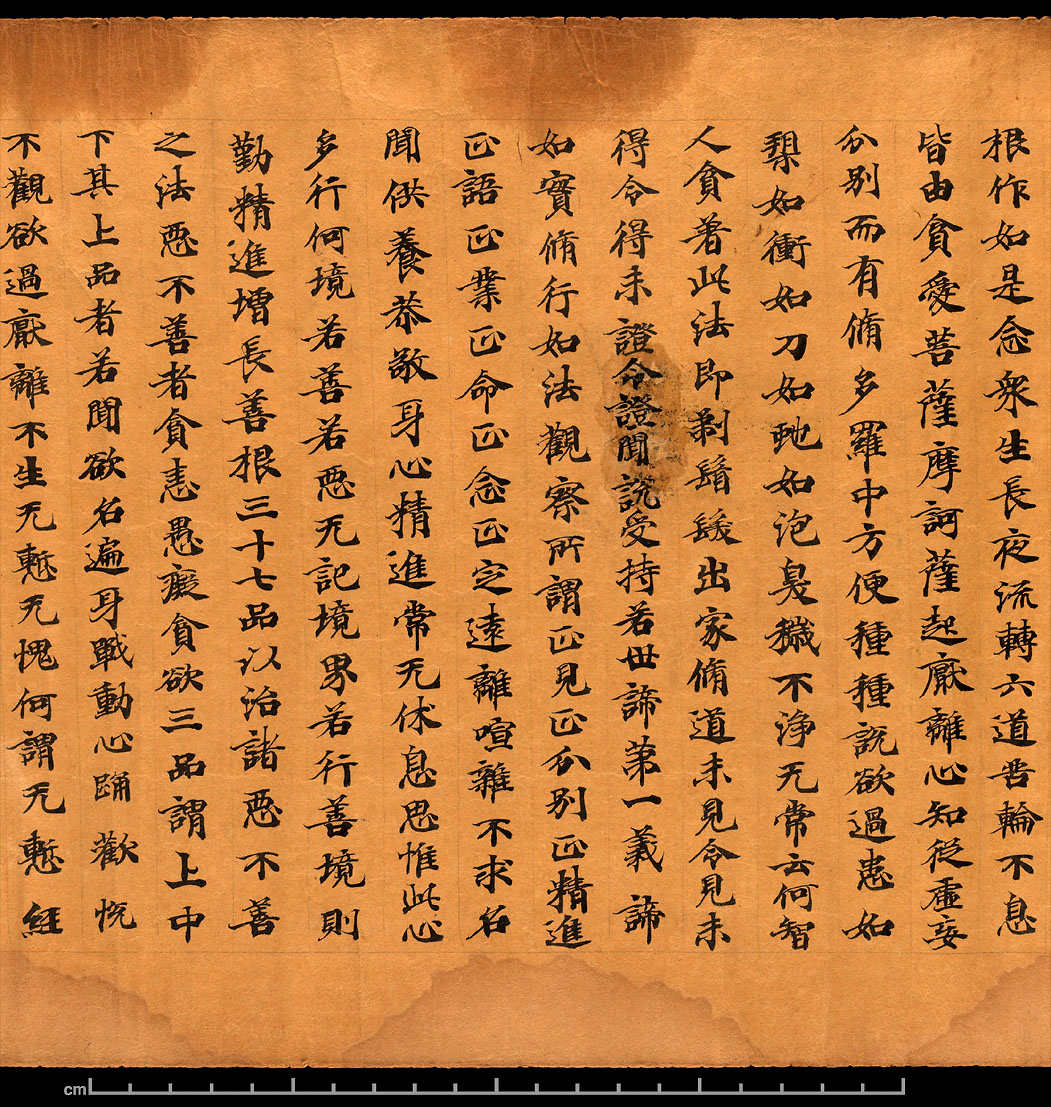 根作如是念衆生長夜流轉六道苦輪不息
皆由貪愛菩薩摩訶薩起猒離心知從虛妄
分別而有脩多羅中方便種種說欲過患如
槊如衝如刀如虵如泡臭穢不淨无常云何智
人貪著此法即剃鬚髮出家脩道未見令見未
得令得未證令證聞說受持若世諦第一義諦
如實脩行如法觀察所謂正見正分別正精進
正語正業正命正念正定遠離喧雜不求名
聞供養恭敬身心精進常无休息思惟此心
多行何境若善若惡无記境界若行善境則
勤精進增長善根三十七品以治諸惡不善
之法惡不善者貪恚愚癡貪欲三品謂上中
下其上品者若聞欲名遍身戰動心踊歡悅
不觀欲過猒離不生无慙无愧何謂无慙經